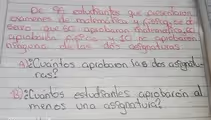 De 95 estudiantes que presentaron
examenes de matematica y fisica, se ob
servo que 50 aprobaron matematica, 60
aprobaron fisica y 10 no aprobaron
ninguna de las dos asignaturas
A) ¿Cuántos aprobaron las dos asignatu-
ras?
B) ¿Cuántos estudiantes aprobaron al
menos una asignatura?